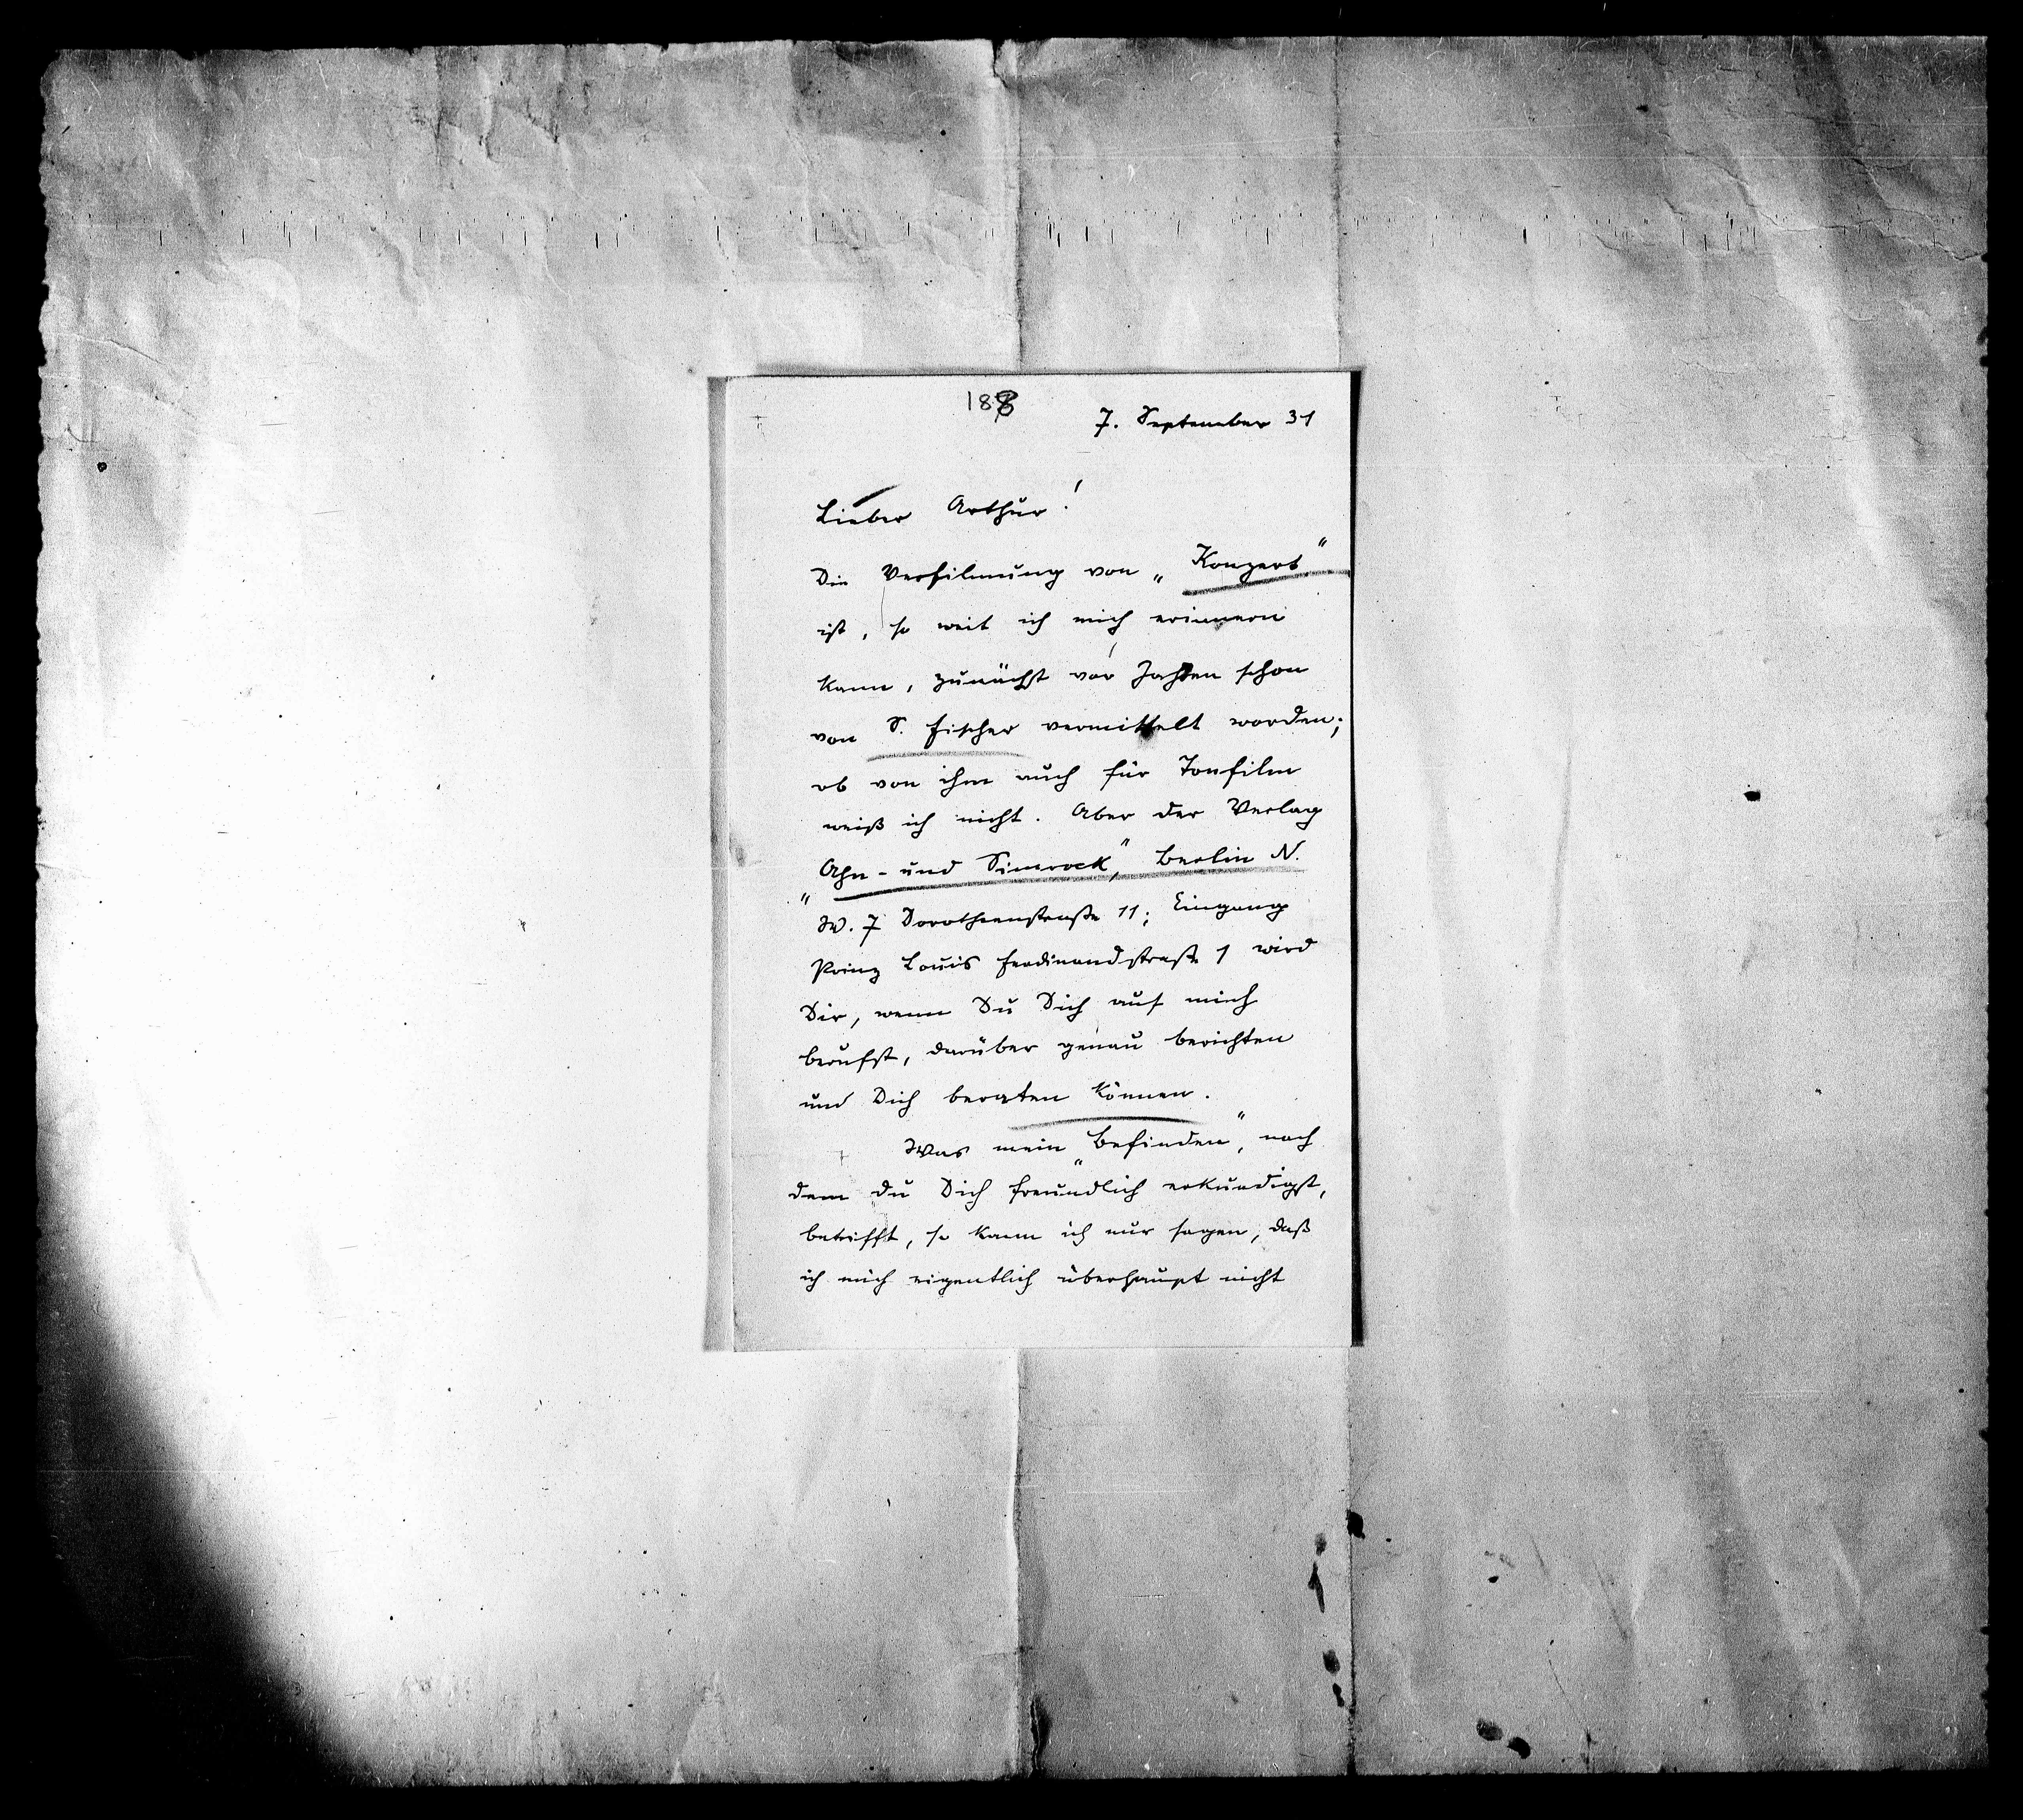 188
7. September 31
Lieber Arthur!
Die Verfilmung von „Konzert“
ist, so weit ich mich erinnern
kann, zunächst vor Jahren schon
von S. Fischer vermittelt worden;
ob von ihm auch für Tonfilm
weiß ich nicht. Aber der Verlag
„Ahn- und Simrock“, Berlin N.
W. 7 Dorotheenstraße 11; Eingang
Prinz Louis Ferdinandstraße 1 wird
Dir, wenn Du Dich auf mich
berufst, darüber genau berichten
und Dich beraten können.
Was mein „Befinden“, nach
dem du Dich freundlich erkundigst,
betrifft, so kann ich nur sagen, daß
ich mich eigentlich überhaupt nicht